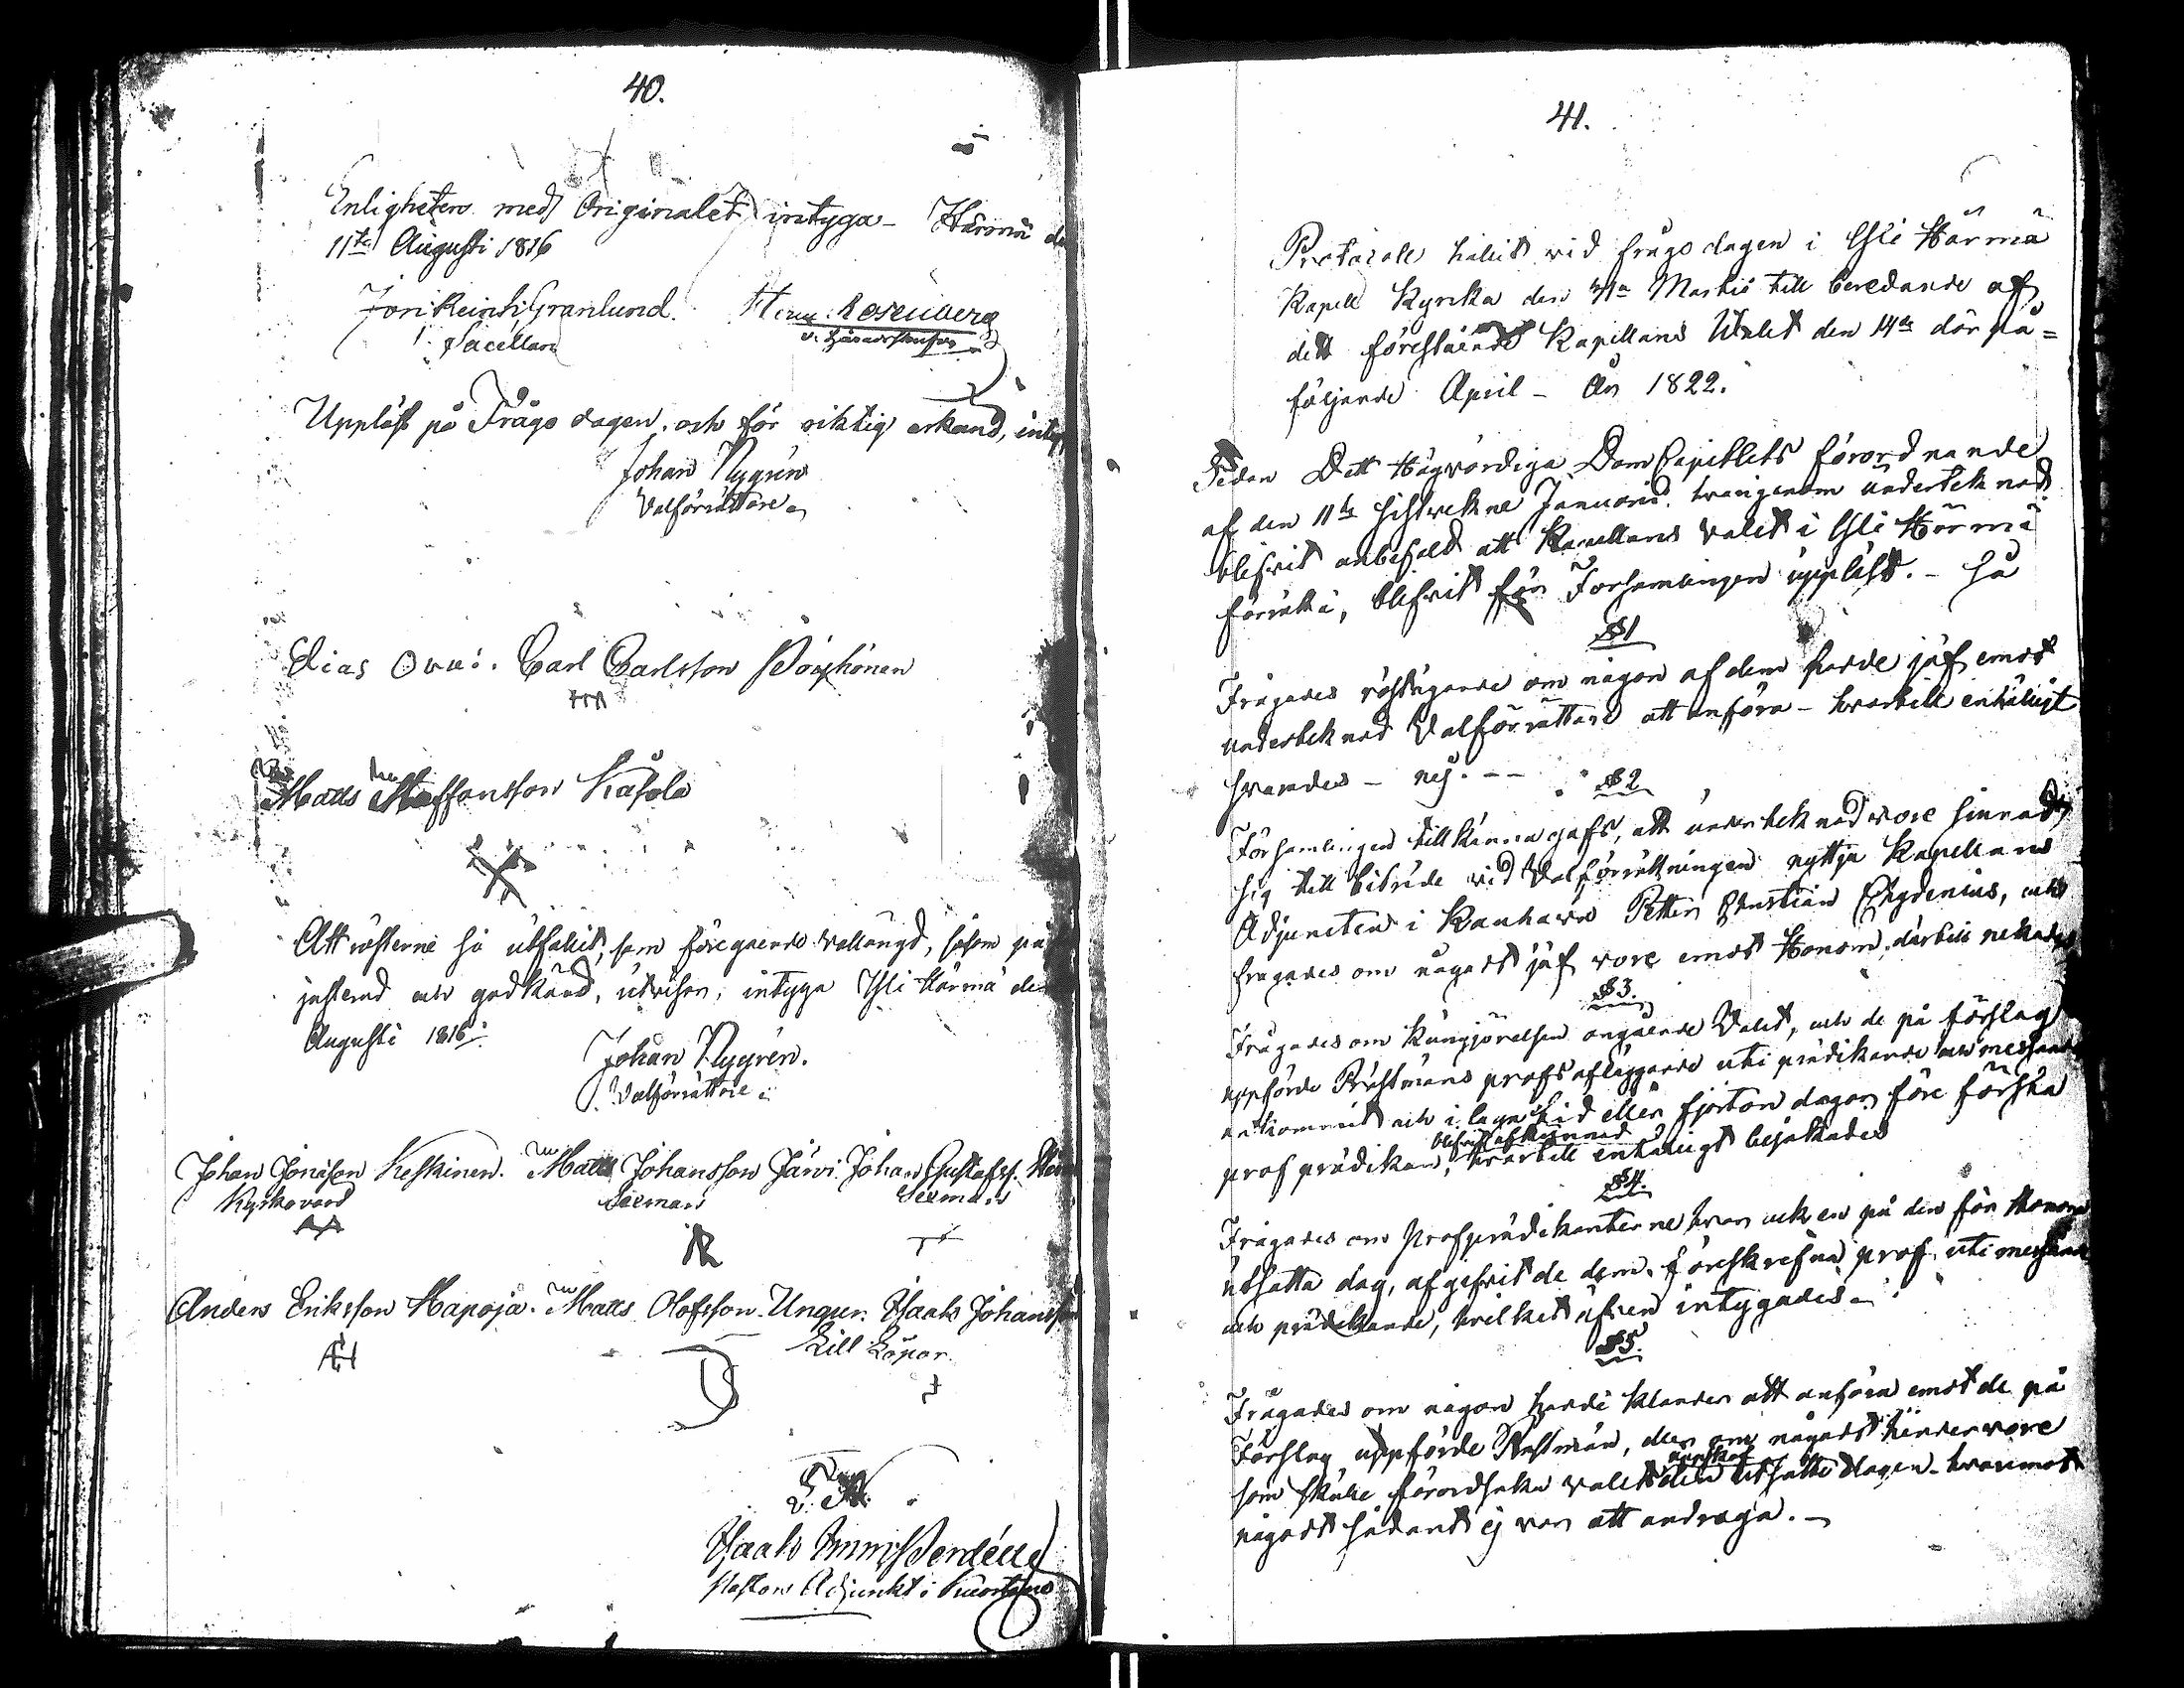 40.
Enligheten med Originalet intyga - Härmä de
11te Augusti 1816
Granlund. Rosenberg
Sacellan
Uppläst på Frågo dagen, och för riktig erkand, intyg
Johan Nygrén
Valförrättare
Elias Carl Carlsson
Matts Staffansson Kåsola
Att rösterne så utfallit, som föregående vallängd, såsom på
justerad och godkänd, utvisar, intyga Ylihärmä de
Augusti 1816
Johan Nygrén.
Valförrättare
Johan Jonasson Keskinen. Matts Johansson Järvi. Johan Gustafss.
Kyrkovärd Sexman Sexman
Anders Eriksson Hapoja. Matts Olofsson Ungur. Isaak Johansson
Lill
AH
Isaak
Pastors Adjunkt i Kuortane
41.
Protocoll hållit vid frågodagen i Yli Härmä
Kapell Kyrka den Martii till beredande af
dett förestående Kapellans Valet den 14de därpå=
följande April - År 1822.
Sedan Dett Högvördiga DomCapitlets förordnande
af den 11te sistvekne Januarii, hvarigenom undertecknad
blifvit anbefald att Kapellans valet i Yli Härmä
förrätta, blifvit för Församlingen uppläst. - så
§1
Frågades röstägande om någon af dem hade jäf emot
undertecknad Valförrättare att anföra - hvartill enhälligt
svarades - nej. - -
§2
Församlingen tillkänna gafs, att undertecknad vore sinnad
sig till biträde vid Valförrättningen nyttja Kapellans
Adjuncten i Kauhava Petter Christian Chydenius, och
frågades om någodt jäf vore emot Honom, därtill nekades
§3.
Frågades om kungjörelsen angående Valet, och de på förslag
uppförde Prästmäns profs afläggande uti predikande och messande
ankommit och i laga tid eller fjorton dagar före första
blifvit afkunnad
prof prädikan, hvartill enhälligt bejakades
§4.
Frågades om Profprädikanterne hvar och en på den för Honom
utsatta dag, afgifvit de dem föreskrefna prof uti messande
och prädikande, hvilket äfven intygades.
§5.
Frågades om någon hade klander att anföra emot de på
Förslag uppförde Prästmän, eller om någodt hinder vore
som skulle förordsaka valets den utsatte dagen - hvaremot
någodt sådant ej var att andraga. -